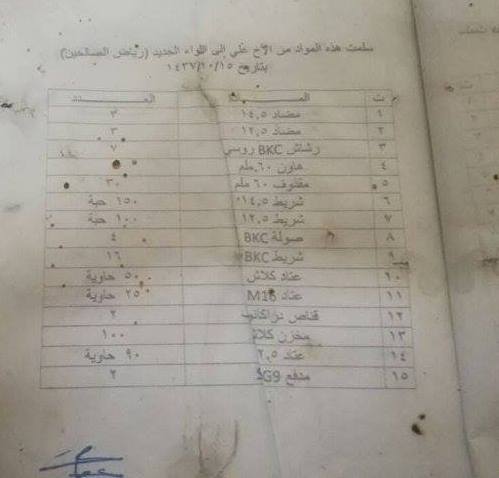 سلمت هذه المواد من الأخ علي إلى اللواء الحديد (رياض الصالحين)
بتاريخ ١٤٣٧/١٠/١٥
ت المـــادة العـــدد
١ مضاد ١٤,٥ ٣
٢ مضاد ١٢,٥ ٣
٣ رشاش BKC روسي ٧
٤ هاون ٦٠ ملم
٥ مقذوف ٦٠ ملم ٣٠
٦ شريط ١٤,٥ ١٥٠ حبة
٧ شريط ١٢,٥ ١٠٠ حبة
٨ صولة BKC ٤
٩ شريط BKC ١٦
١٠ عتاد كلاش ٥٠ حاوية
١١ عتاد M16 ٢٥ حاوية
١٢ قناص ٢
١٣ مخزن كلاش ١٠٠
١٤ عتاد ٢,٥ ٩٠ حاوية
١٥ مدفع SG9 ٢